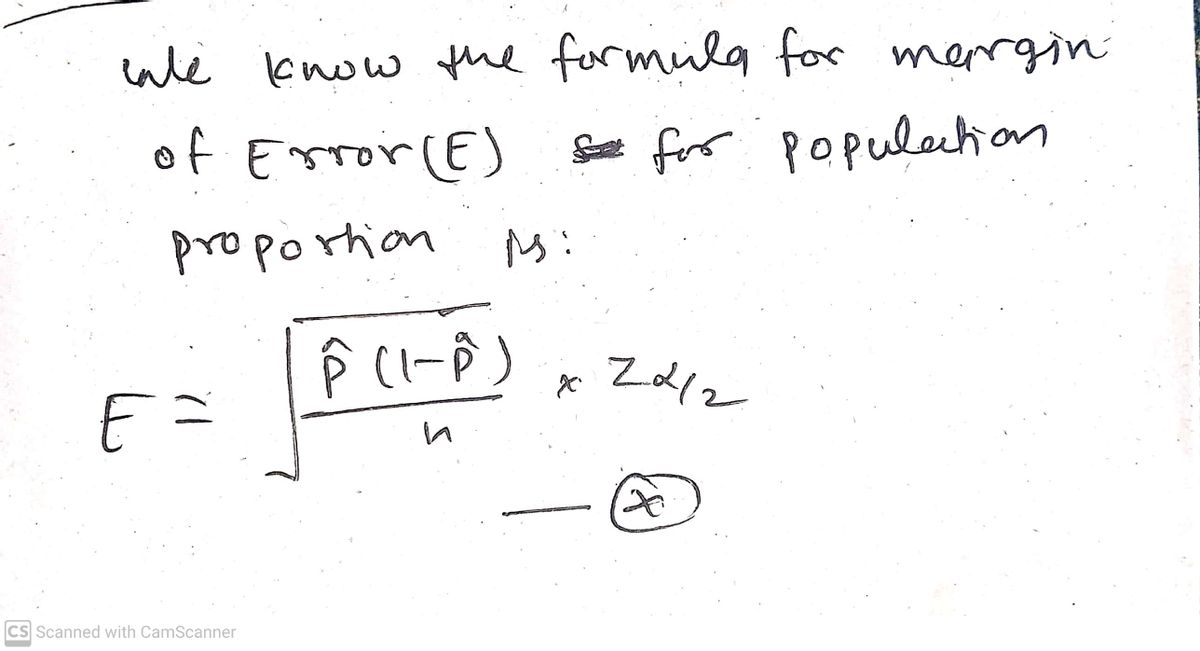 we know the formula for margin
of Error(E) for population
proportion is:
E = √(p̂ (1-p̂) / n) × Zα/2
— (*)
CS Scanned with CamScanner